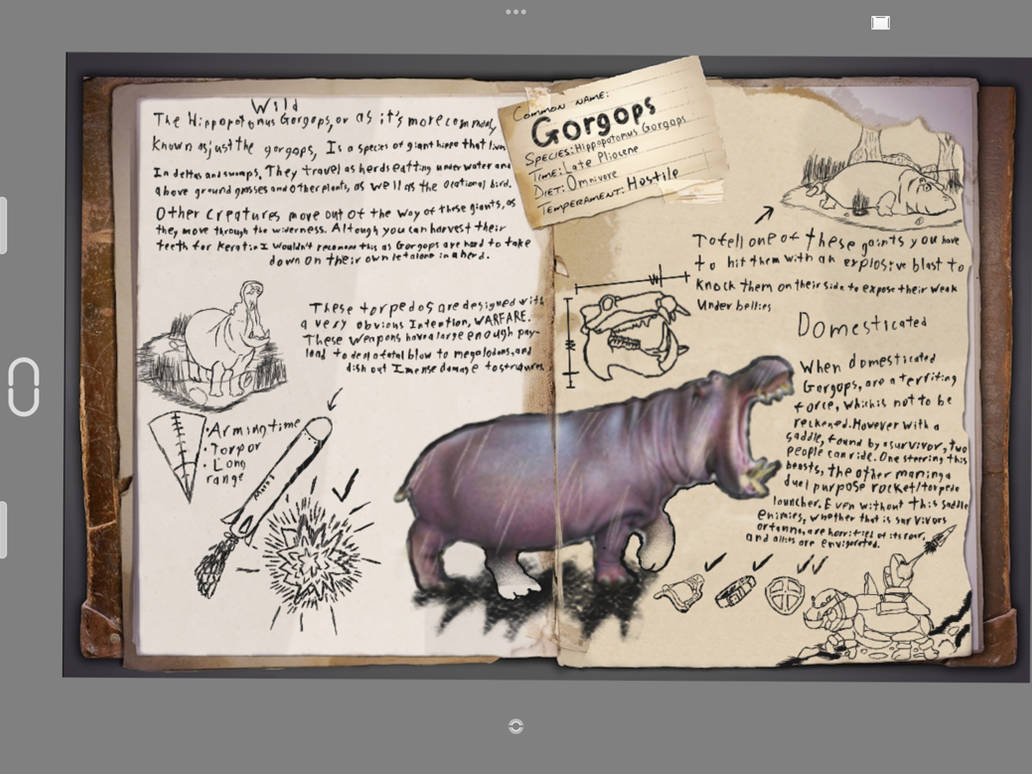 Wild
The Hippopotomus Gorgops, or as it's more commonly
known as just the gorgops, Is a species of giant hippo that lives
In deltas and swamps, They travel as herds eatting underwater and
above ground grasses and other plants, as well as the
Other Creatures move out of the way of these giants, as
they move through the wilderness. Althugh you can harvest their
teeth for Keratin I wouldn't recomene this as Gorgops are hard to take
down on their own let alone in a herd.
These torpedos are designed with
a very obvious Intention, WARFARE.
These Weapons have a large enough pay-
load to deal a fatal blow to megalodons, and
dish out Imense damage to structures.
• Arming time
• Torpor
• Long
range
COMMON NAME:
Gorgops
SPECIES: Hippopotomus Gorgops
TIME: Late Pliocene
DIET: Omnivore
TEMPERAMENT: Hostile
To fell one of these gaints you have
to hit them with an explosive blast to
knock them on their side to expose their weak
Under bellies
W
H
Domesticated
When domesticated
Gorgops, are a terrifiting
force, which is not to be
reckened. However with a
saddle, found by a survivor, two
people can ride. One steering this
beasts, the other maning a
duel purpose rocket/torpedo
launcher. Even without this saddle
enimies, whether that is survivors
or tames, are horrified of its roar,
and allies are envigorated.